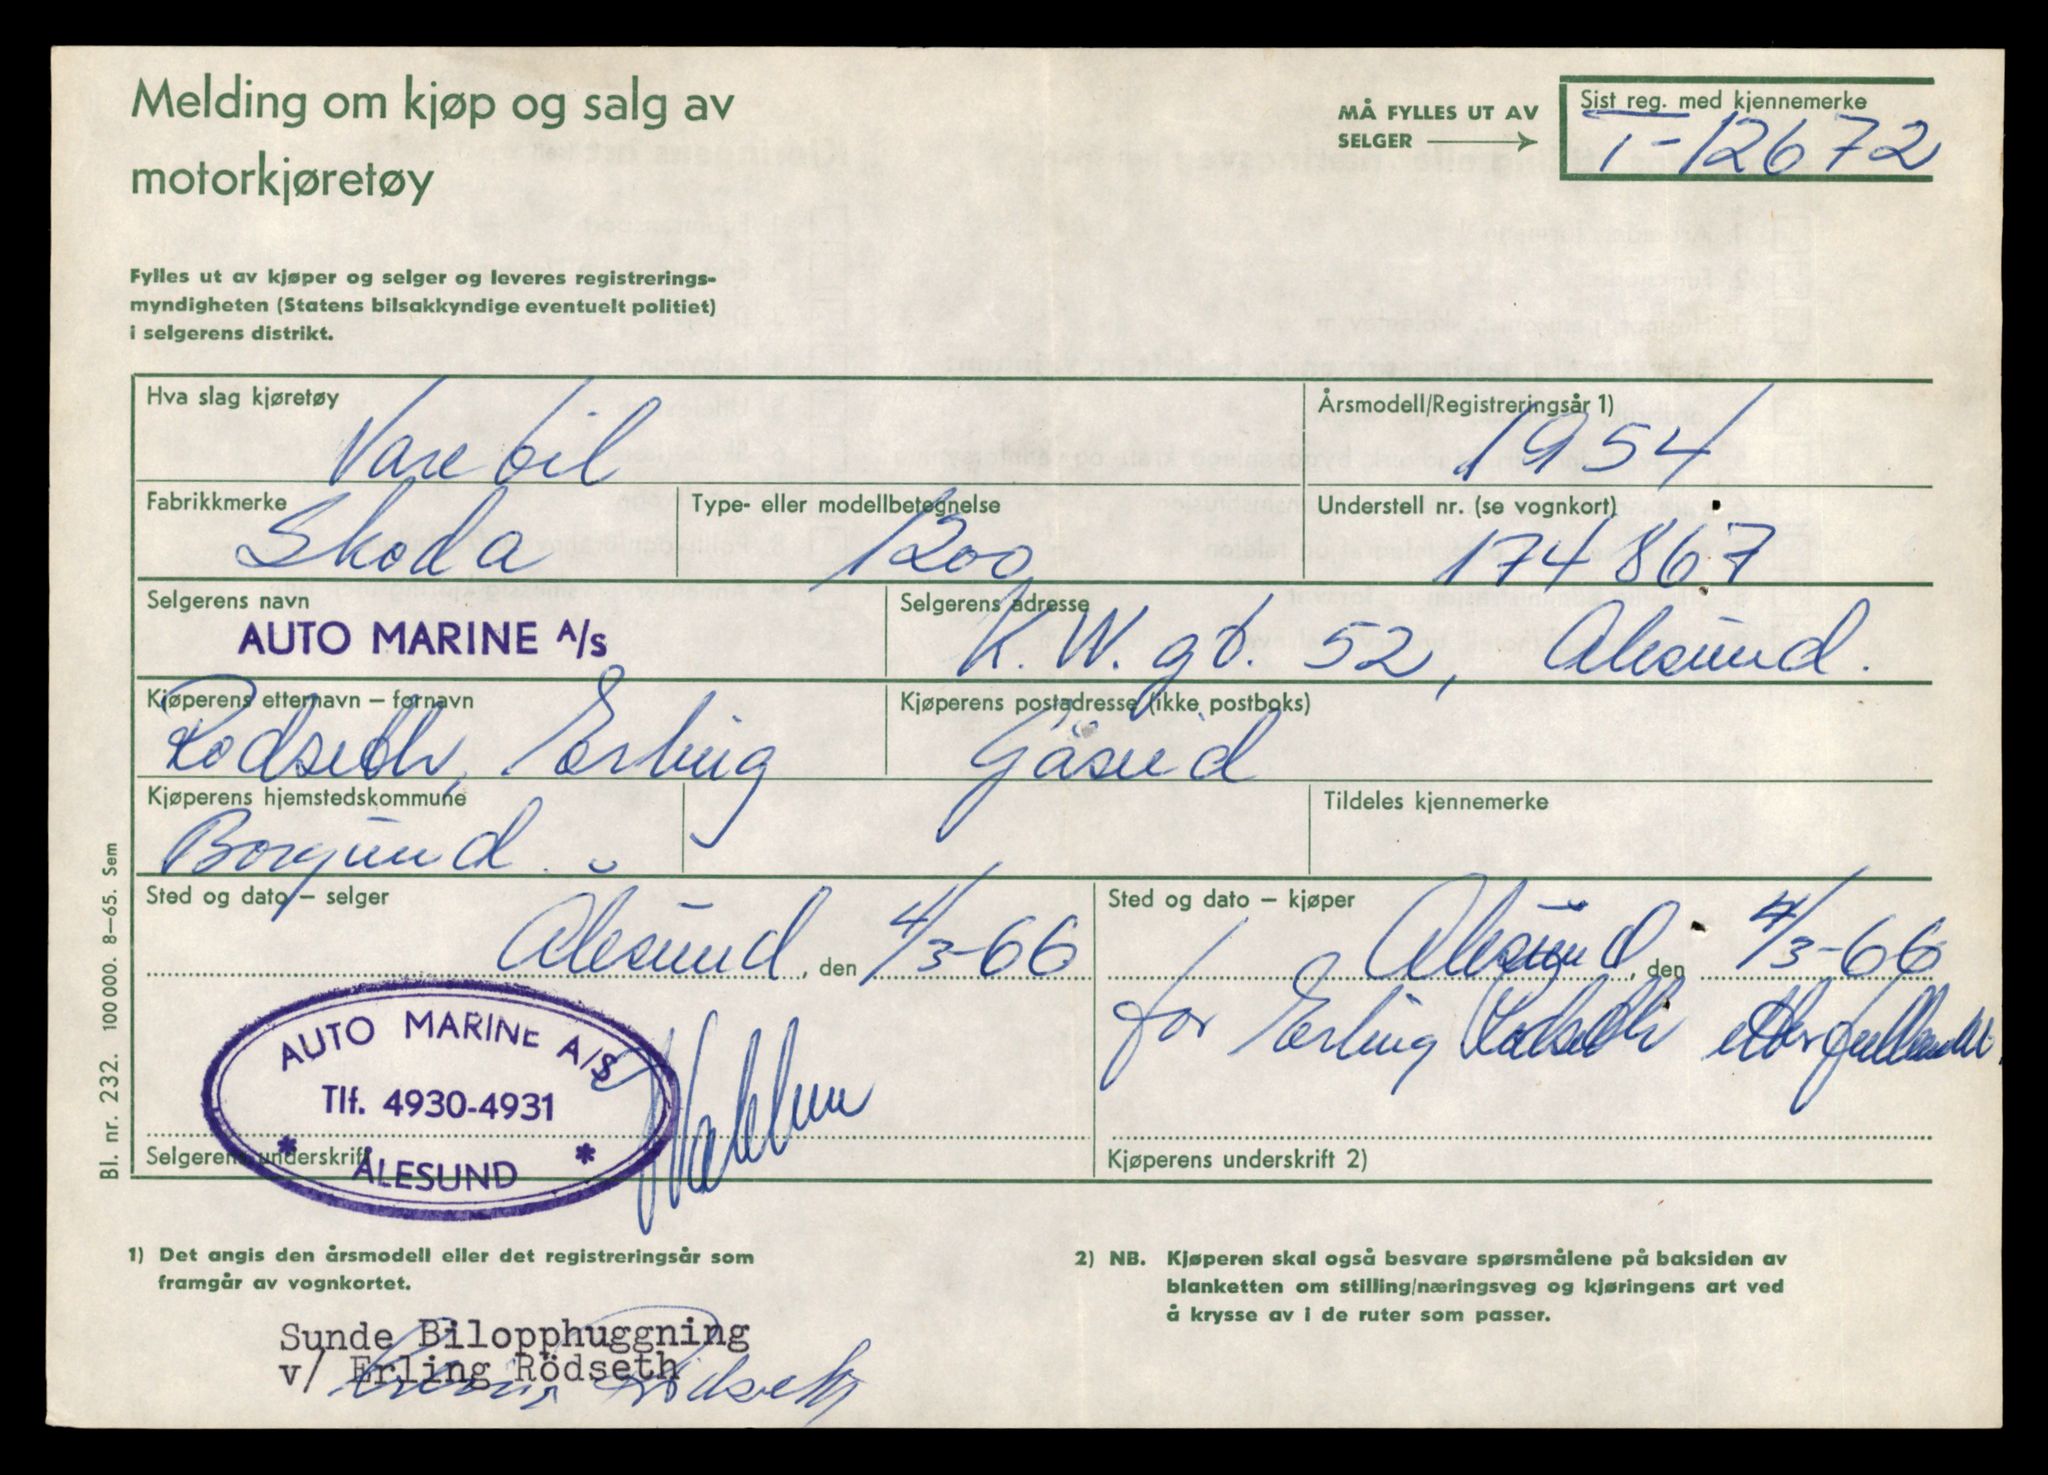 Melding om kjøp og salg av
motorkjøretøy
MÅ FYLLES UT AV
SELGER
Sist reg. med kjennemerke
T-12672
Fylles ut av kjøper og selger og leveres registrerings-
myndigheten (Statens bilsakkyndige eventuelt politiet)
i selgerens distrikt.
Hva slag kjøretøy
Varebil
Årsmodell/Registreringsår 1)
1954
Fabrikkmerke
Skoda
Type- eller modellbetegnelse
1200
Understell nr. (se vognkort)
174867
Selgerens navn
AUTO MARINE A/S
Selgerens adresse
K. W. gt. 52, Ålesund.
Kjøperens etternavn – fornavn
Rødseth, Erling
Kjøperens postadresse (ikke postboks)
Gåseid
Kjøperens hjemstedskommune
Borgund.
Tildeles kjennemerke
Sted og dato – selger
Ålesund, den 4/3-66
Sted og dato – kjøper
Ålesund, den 4/3-66
for Erling Rødseth etter fullmakt.
AUTO MARINE A/S
Tlf. 4930-4931
* ÅLESUND *
Selgerens underskrift
Kjøperens underskrift 2)
Bl. nr. 232. 100 000. 8–65. Sem
1) Det angis den årsmodell eller det registreringsår som
framgår av vognkortet.
2) NB. Kjøperen skal også besvare spørsmålene på baksiden av
blanketten om stilling/næringsveg og kjøringens art ved
å krysse av i de ruter som passer.
Sunde Bilopphuggning
v/ Erling Rödseth
Erling Rødseth